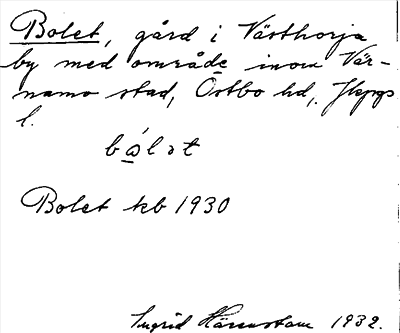 Bolet, gård i Västhorja
by med område inom Vär-
namo stad, Östbo hd, Jkpgs
l.
bώlət
Bolet kb 1930
Ingrid Härenstam 1932.